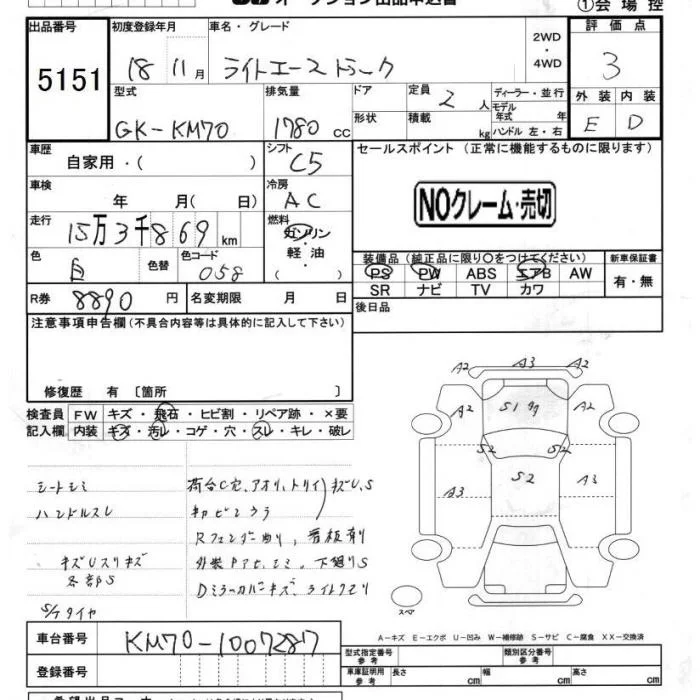 ①会場控
出品番号 5151
初度登録年月 18 11月
車名・グレード ライトエーストラック
2WD・4WD
評価点 3
型式 GK-KM70
排気量 1780 cc
ドア
形状
定員 2 人
積載 kg
ディーラー・並行
モデル年式 年
ハンドル 左・右
外装 E
内装 D
車歴 自家用・( )
シフト C5
セールスポイント (正常に機能するものに限ります)
車検 年 月( 日)
冷房 AC
NOクレーム・売切
走行 15万3千869 km
燃料 ガソリン・軽油・( )
色 白 色替
色コード 058
装備品 (純正品に限り○をつけてください)
新車保証書
PS PW ABS エアB AW
有・無
SR ナビ TV カワ
R券 8890 円
名変期限 月 日
後日品
注意事項申告欄(不具合内容等は具体的に記入して下さい)
修復歴 有 〔箇所 〕
検査員記入欄
FW キズ・飛石・ヒビ割・リペア跡・×要
内装 キズ・汚レ・コゲ・穴・スレ・キレ・破レ
シートシミ
ハンドルスレ
キズUスリキズ
各部S
S/Tタイヤ
荷台C穴、アオリ、トリイ キズU、S
Rフェンダー
下廻りS
Dミラーカバーキズ、ライトクモリ
A2 A3 A2
A2 A2
S1
S2 S2
S2
A3 A3
スペア
A-キズ E-エクボ U-凹み W-補修跡 S-サビ C-腐食 XX-交換済
車台番号 KM70-1007287
型式指定番号 参考
類別区分番号 参考
登録番号
車庫証明用 参考 長さ cm 幅 cm 高さ cm